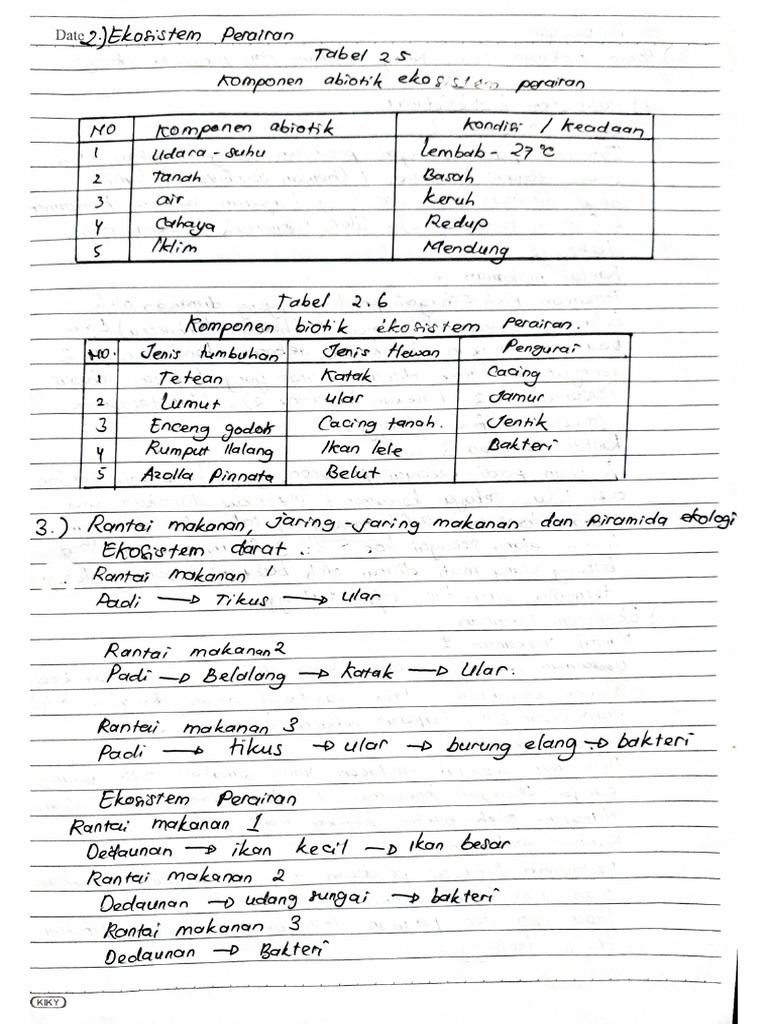 Date 2.) Ekosistem Perairan
Tabel 2.5
Komponen abiotik ekosistem perairan
NO Komponen abiotik Kondisi / Keadaan
1 Udara - suhu Lembab - 27°C
2 Tanah Basah
3 air Keruh
4 Cahaya Redup
5 Iklim Mendung
Tabel 2.6
Komponen biotik ekosistem Perairan.
NO. Jenis tumbuhan Jenis Hewan Pengurai
1 Tetean Katak Cacing
2 Lumut ular Jamur
3 Enceng godok Cacing tanah. Jentik
4 Rumput Ilalang Ikan lele Bakteri
5 Azolla Pinnata Belut
3.) Rantai makanan, jaring-jaring makanan dan piramida ekologi
Ekosistem darat.
Rantai makanan 1
Padi → Tikus → Ular
Rantai makanan 2
Padi → Belalang → Katak → Ular.
Rantai makanan 3
Padi → tikus → ular → burung elang → bakteri
Ekosistem Perairan
Rantai makanan 1
Dedaunan → ikan kecil → Ikan besar
Rantai makanan 2
Dedaunan → udang sungai → bakteri
Rantai makanan 3
Dedaunan → Bakteri
KIKY